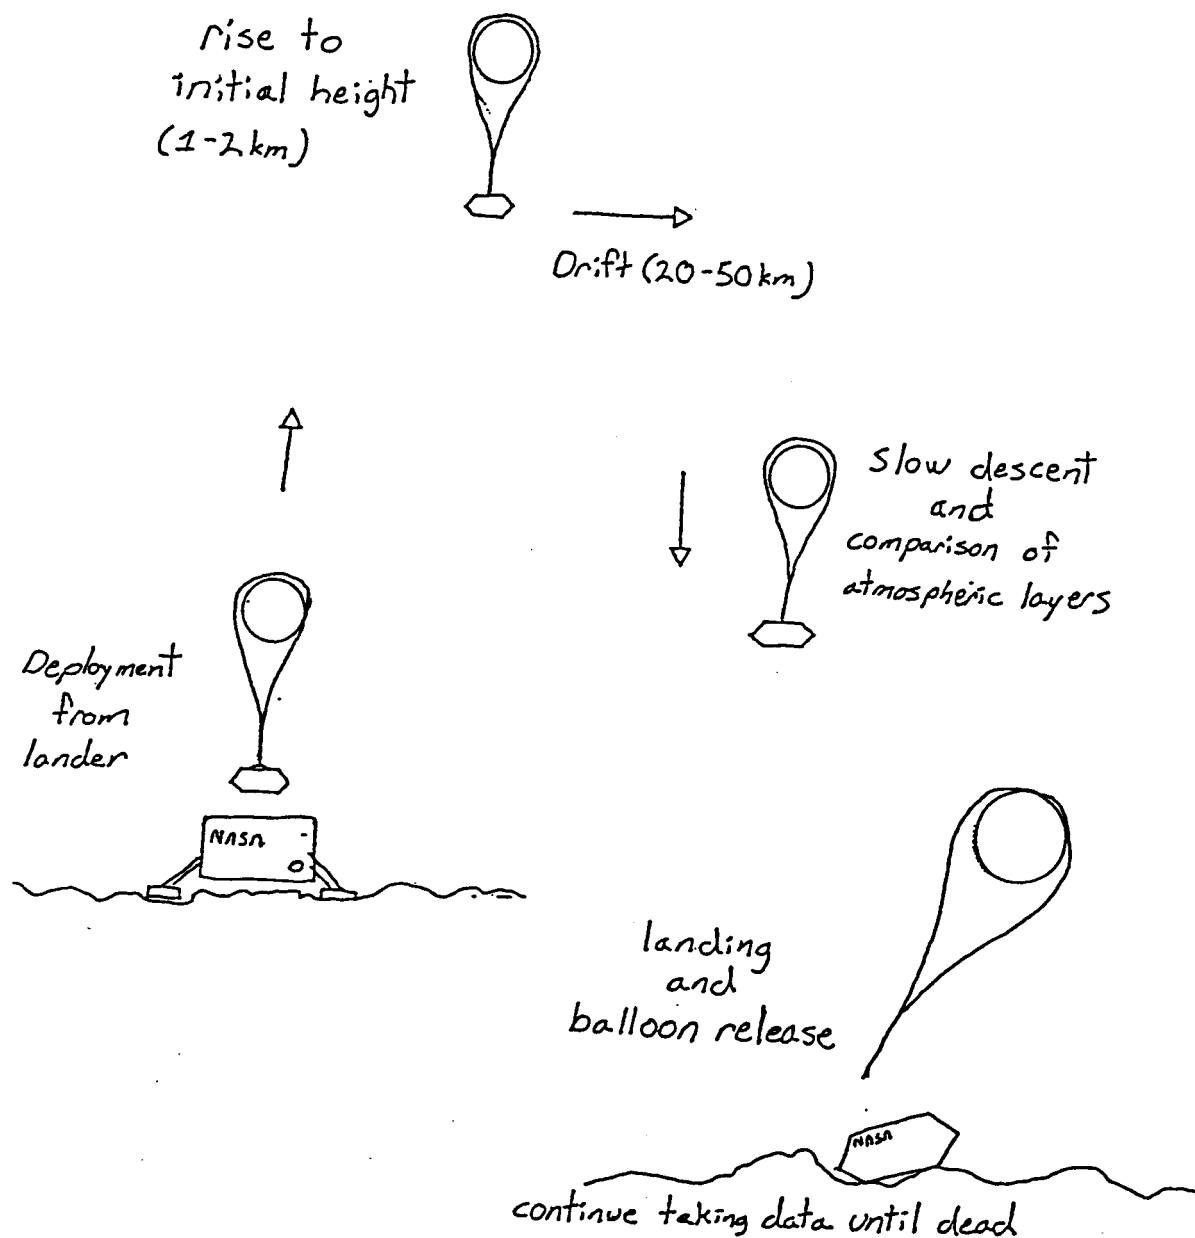 rise to
initial height
(1-2km)
Drift (20-50km)
Slow descent
and
comparison of
atmospheric layers
Deployment
from
lander
NASA
landing
and
balloon release
NASA
continue taking data until dead